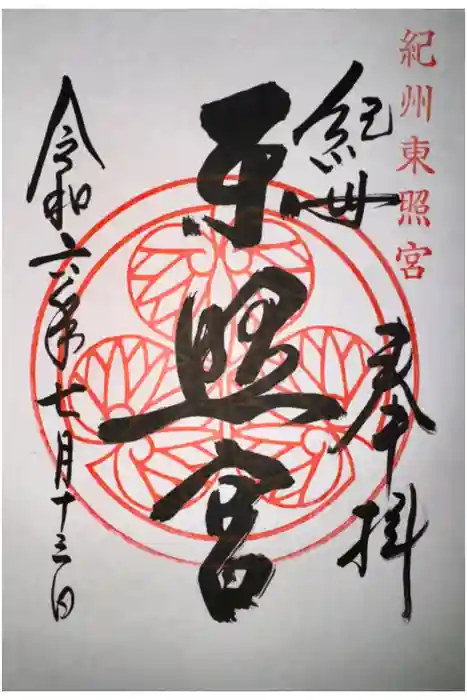 紀州東照宮
紀州
奉拝
東照宮
令和六年七月十三日